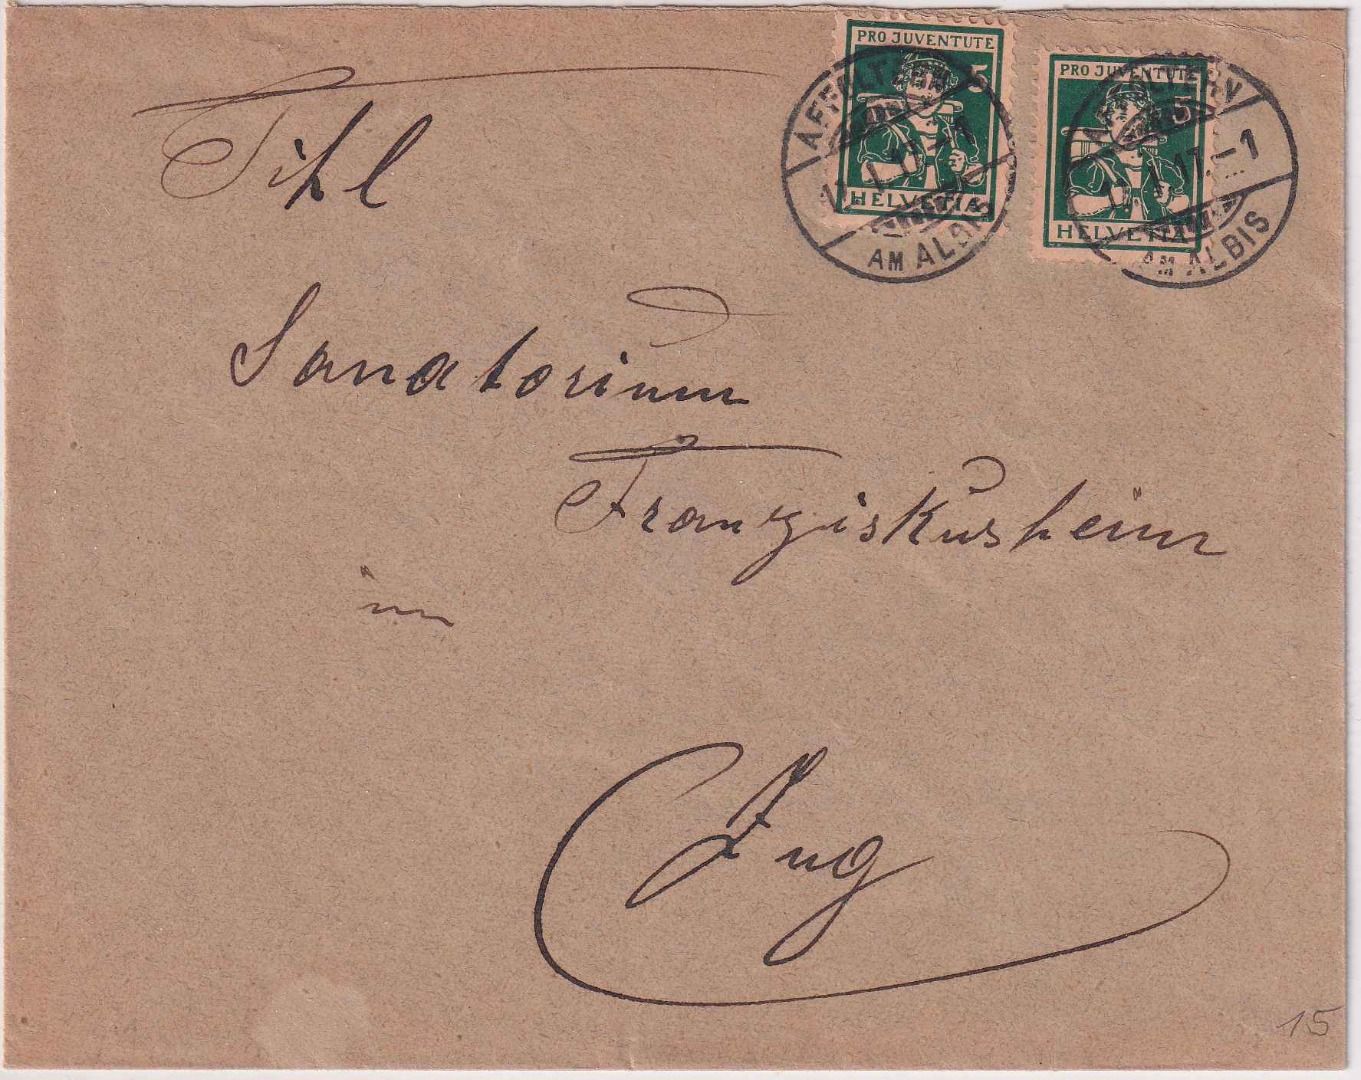 PRO JUVENTUTE
5
HELVETIA
PRO JUVENTUTE
5
HELVETIA
AM ALBIS
AFFOLTERN
17. –1
AM ALBIS
Titl
Sanatorium
Franziskusheim
in
Zug
15